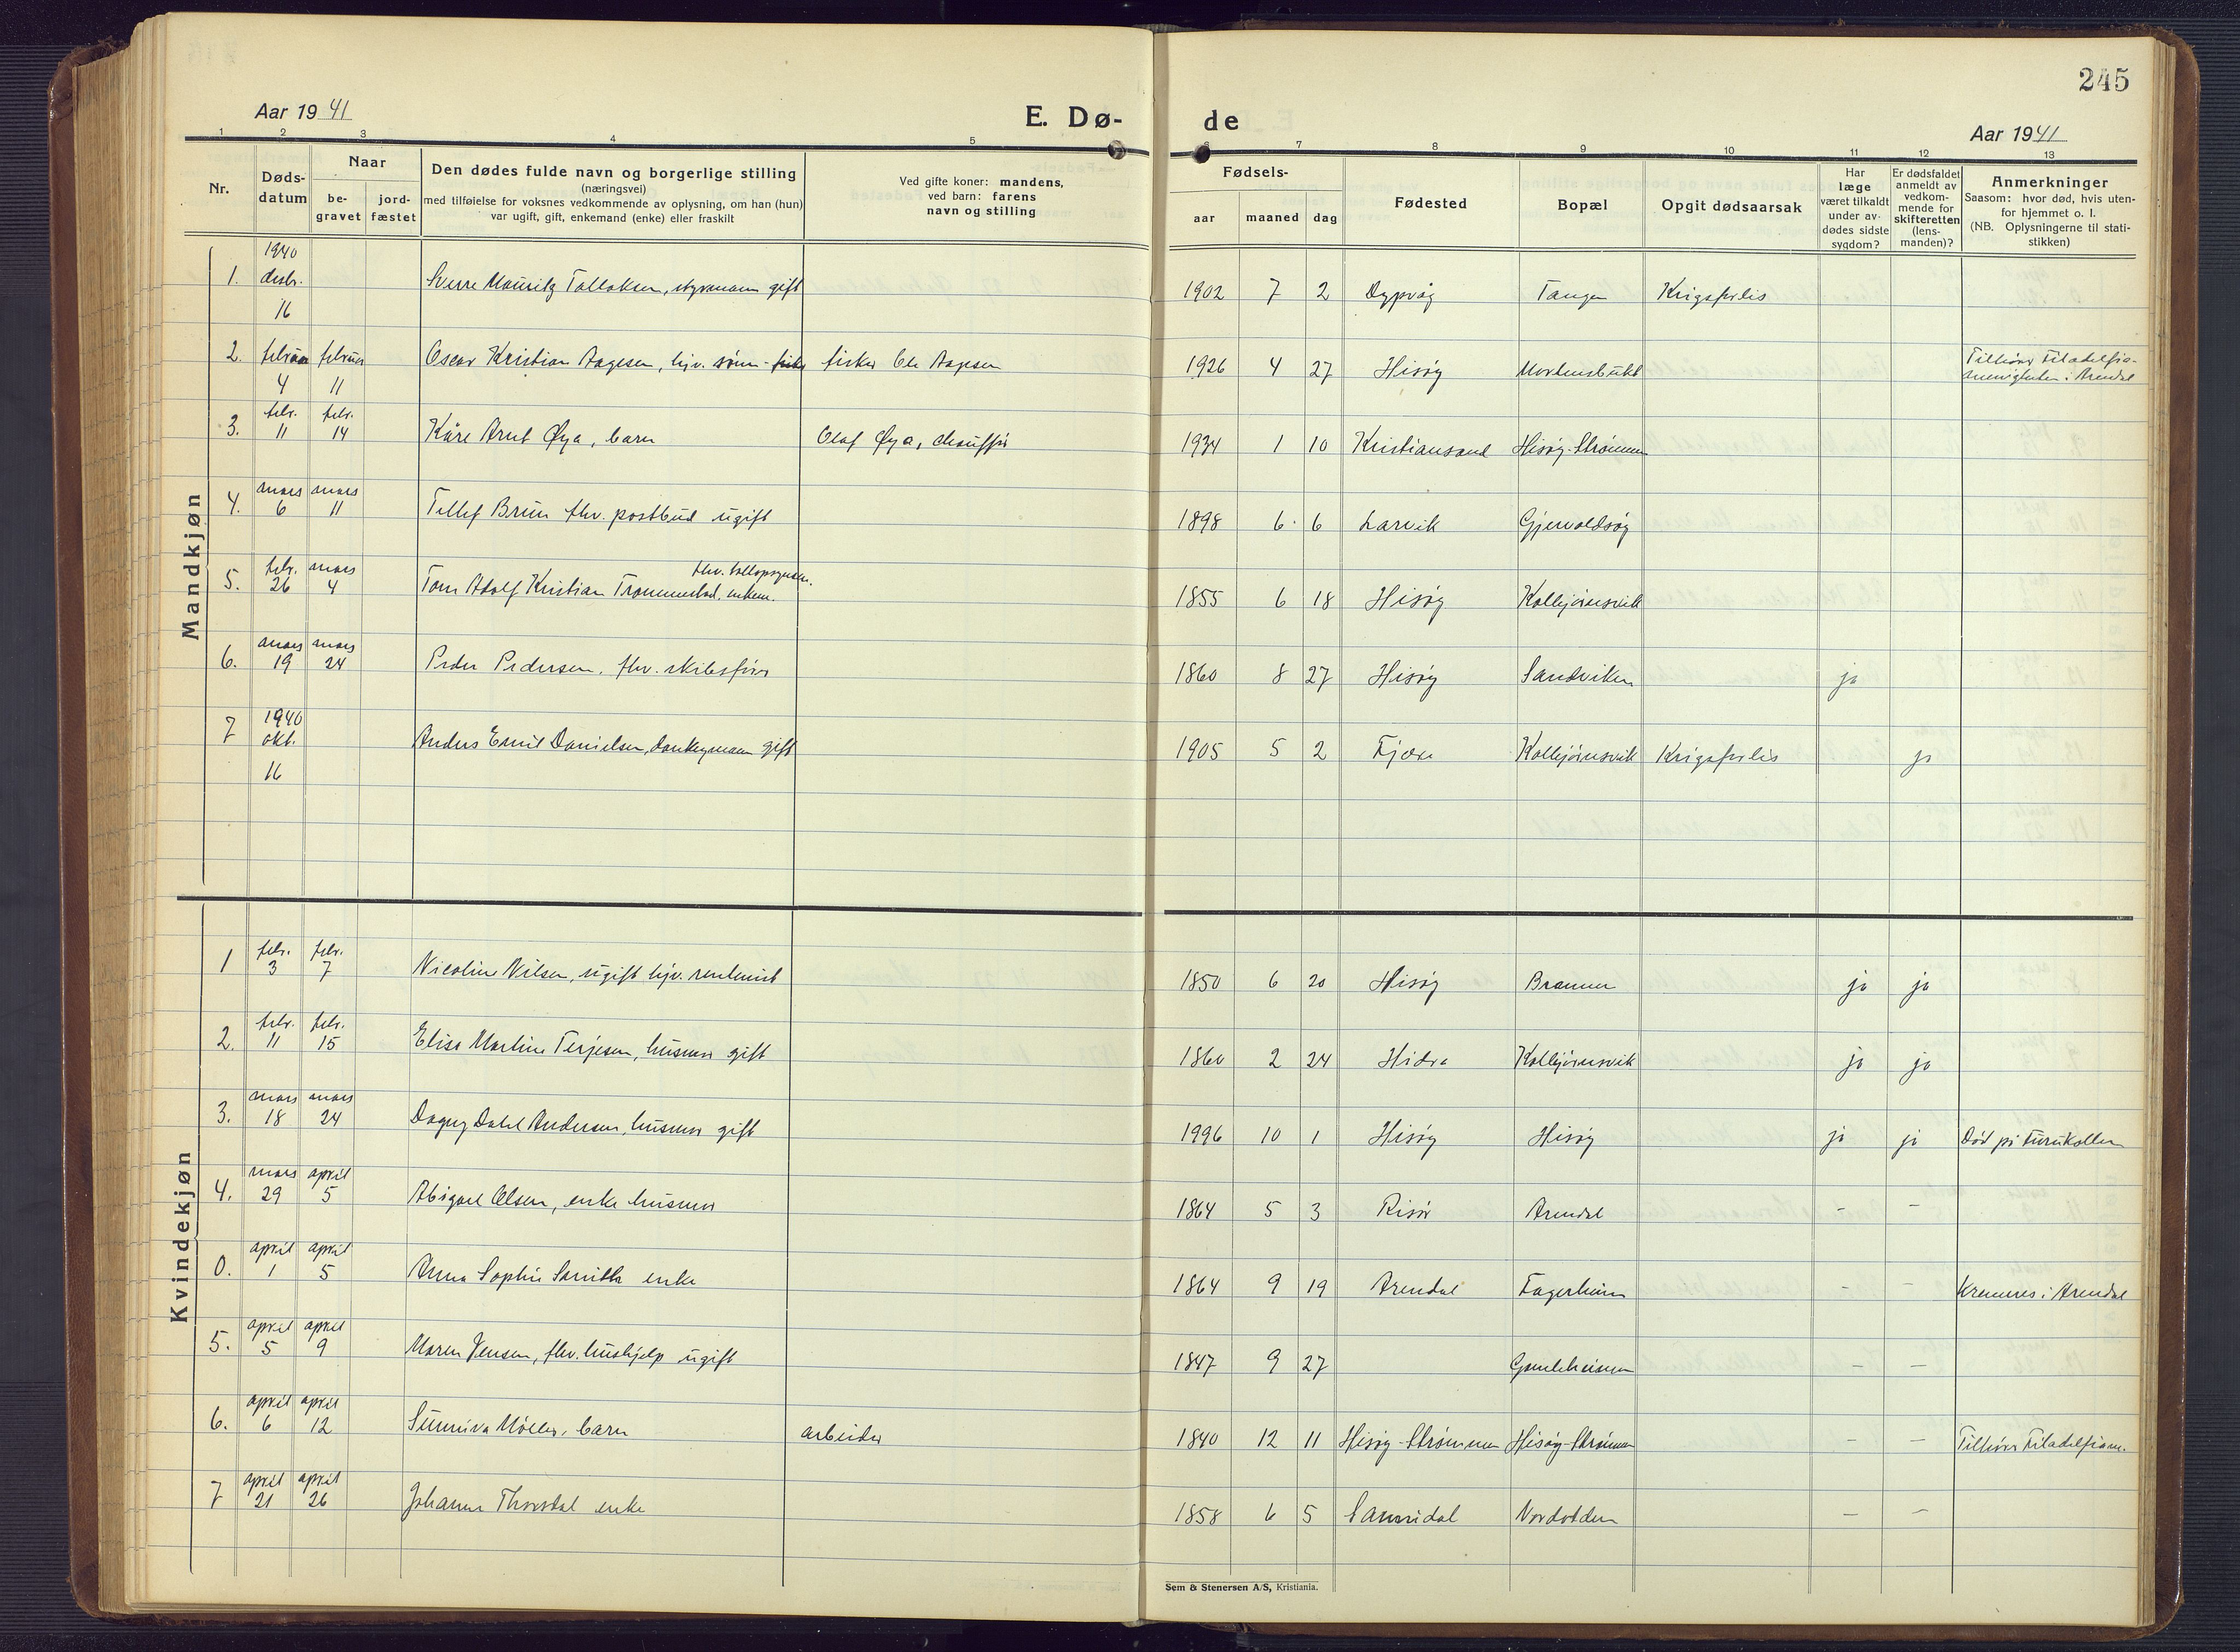 245
Aar 1941
E. Dø-
de
Aar 1941
1 2 3 4 5 6 7 8 9 10 11 12 13
Nr.
Døds-
datum
Naar
be-
gravet
jord-
fæstet
Den dødes fulde navn og borgerlige stilling
(næringsvei)
med tilføielse for voksnes vedkommende av oplysning, om han (hun)
var ugift, gift, enkemand (enke) eller fraskilt
Ved gifte koner: mandens,
ved barn: farens
navn og stilling
Fødsels-
aar maaned dag
Fødested
Bopæl
Opgit dødsaarsak
Har
læge
været tilkaldt
under av-
dødes sidste
sygdom?
Er dødsfaldet
anmeldt av
vedkom-
mende for
skifteretten
(lens-
manden)?
Anmerkninger
Saasom: hvor død, hvis uten-
for hjemmet o. l.
(NB. Oplysningerne til stati-
stikken)
Mandkjøn
1. 1940 desbr. 16 Sverre Mauritz Tallaksen, styrmann gift 1902 7 2 Dypvåg Tangen Krigsforlis
2. februar 4 februar 11 Oscar Kristian Aagesen, hjv. sønn - fisker Ole Aagesen 1926 4 27 Hisøy Mortensbukt Tilhører Filadelfia-
menigheten i Arendal
3. febr. 11 febr. 14 Kåre Arnt Øya, barn Olaf Øya, chauffør 1934 1 10 Kristiansand Hisøy-Strømmen
4. mars 6 mars 11 Tellef Bruun fhv. postbud ugift 1898 6 6 Larvik Gjervoldsøy
5. febr. 26 mars 4 Tom Adolf Kristian Trommestad, enkem. fhv. tollopsynsm. 1855 6 18 Hisøy Kolbjørnsvik
6. mars 19 mars 24 Peder Pedersen, fhv. skibsfører 1860 8 27 Hisøy Sandviken ja
7 1940 okt. 16 Anders Emil Danielsen, donkeymann gift 1905 5 2 Fjære Kolbjørnsvik Krigsforlis ja
Kvindekjøn
1 febr. 3 febr. 7 Nicoline Nilsen, ugift hjv. rentenist 1850 6 20 Hisøy Brommen ja ja
2. febr. 11 febr. 15 Elise Martine Terjesen, husmor gift 1860 2 24 Hidra Kolbjørnsvik ja ja
3. mars 18 mars 24 Dagny Dahl Andersen, husmor gift 1996 10 1 Hisøy Hisøy ja ja Død på Furukollen
4. mars 29 april 5 Abigael Olsen, enke husmor 1864 5 3 Risør Arendal - -
0. april 1 april 5 Anna Sophie Smith enke 1864 9 19 Arendal Fagerheim - - Kremeres i Arendal
5. april 5 april 9 Maren Jensen, fhv. hushjelp ugift 1847 9 27 Gamleheimen - -
6. april 6 april 12 Sunniva Møller, barn arbeider 1840 12 11 Hisøy-Strømmen Hisøy-Strømmen - - Tilhører Filadelfiam.
7 april 21 april 26 Johanne Thorsdal enke 1858 6 5 Sannidal Nordodden - -
Sem & Stenersen A/S, Kristiania.